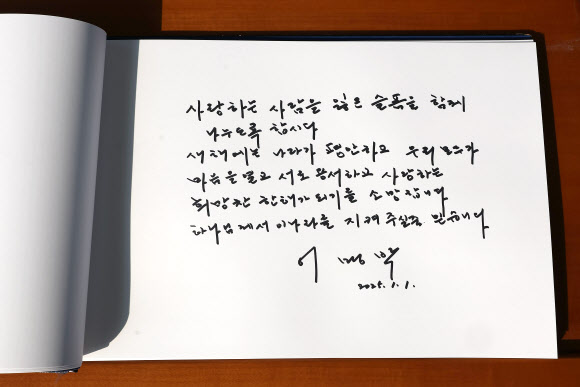 사랑하는 사람을 잃은 슬픔을 함께
나누도록 합시다
새해에는 나라가 평안하고 우리 모두가
마음을 열고 서로 용서하고 사랑하는
희망찬 한해가 되기를 소망합니다
하나님께서 이나라를 지켜 주실줄 믿습니다
이 명 박
2025. 1. 1.